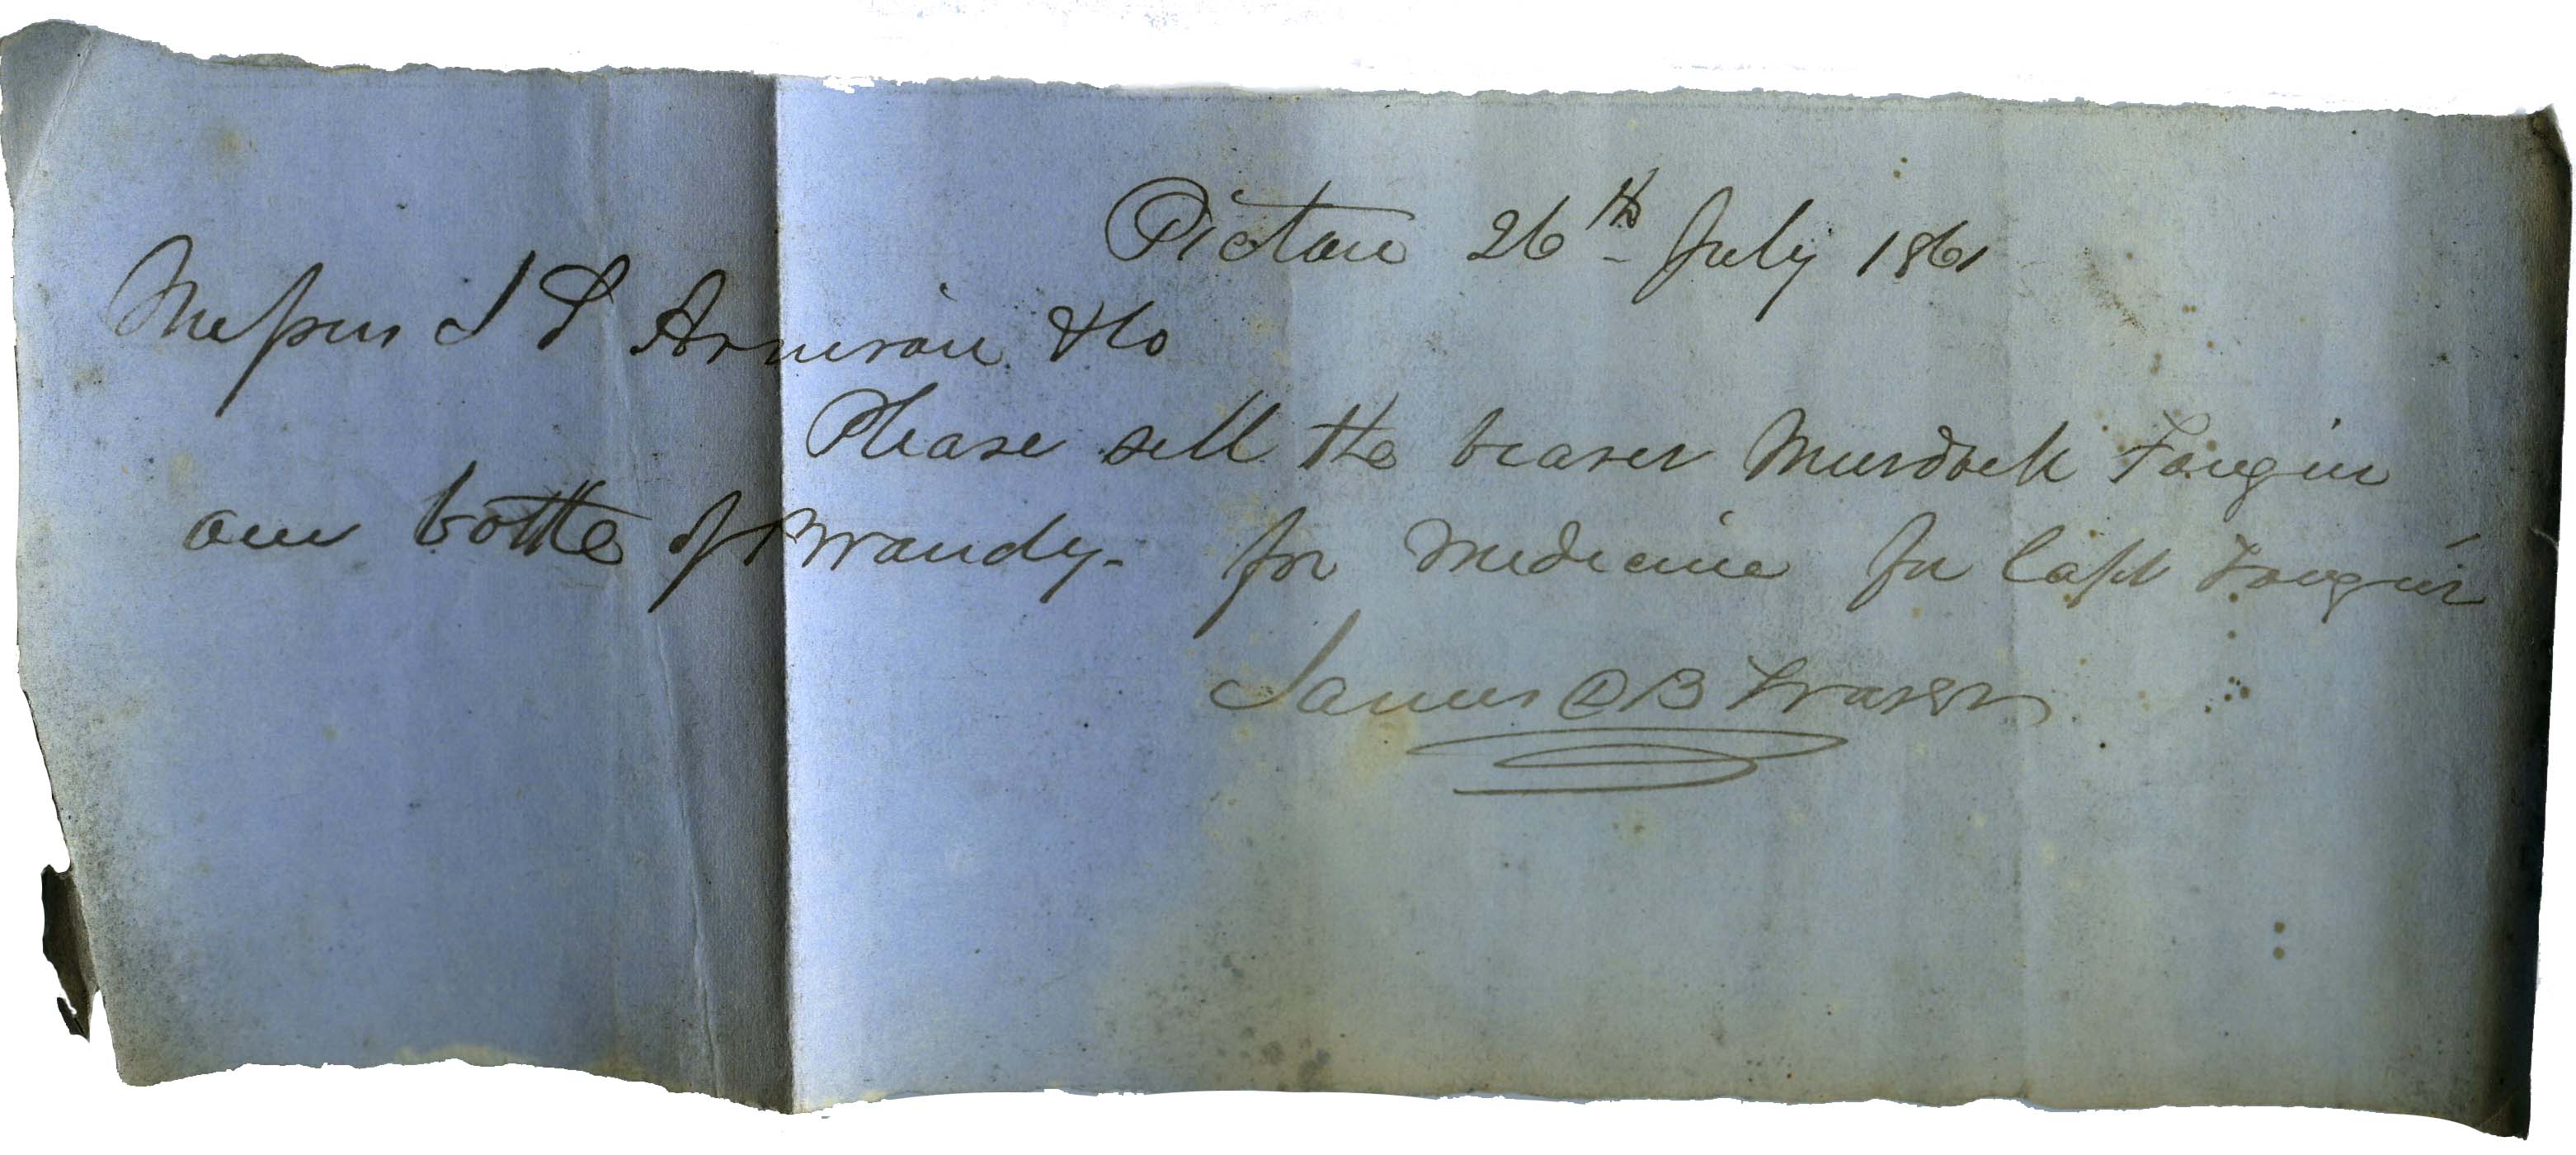 Pictou 26th July 1861
Messrs J D Arnison & Co
Please sell the bearer Murdoch
one bottle of Brandy - for Medicine for Capt
James D B Fraser